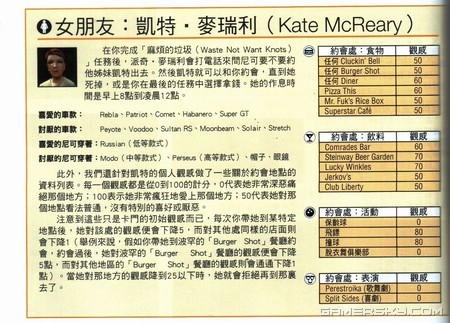 女朋友：凱特·麥瑞利（Kate McReary）
在你完成「麻煩的垃圾（Waste Not Want Knots）
」任務後，派奇·麥瑞利會打電話來問尼可要不要約
他姊妹凱特出去。然後凱特就可以和你約會，直到她
死掉，或是你在最後的任務中選擇拿錢。她的作息時
間是早上8點到凌晨12點。
喜愛的車款： Rebla、Patriot、Comet、Habanero、Super GT
討厭的車款： Peyote、Voodoo、Sultan RS、Moonbeam、Solair、Stretch
喜愛的尼可穿著：Russian（低等款式）
討厭的尼可穿著：Modo（中等款式）、Perseus（高等款式）、帽子、眼鏡
此外，我們還針對凱特的個人觀感做了一些關於約會地點的
資料列表。每一個觀感都是從0到100的計分，0代表她非常深惡痛
絕那個地方；100表示她非常瘋狂地愛上那個地方；50代表她對那
個地點看法普通，沒有特別的喜好或厭惡。
注意到這些只是卡門的初始觀感而已，每次你帶她到某特定
地點後，她對該處的觀感便會下降5，而對其他處同樣的店面則
會下降1（舉例來說，假如你帶她到波罕的「Burger Shot」餐廳約
會，約會過後，她對波罕的「Burger Shot」餐廳的觀感便會下降
5點，而對其他地區的「Burger Shot」餐廳的觀感則會通通下降1
點）。當她對那地方的觀感降到25以下時，她就會拒絕再到那裏
去了。
約會處：食物 觀感
任何 Cluckin' Bell 50
任何 Burger Shot 50
任何 Diner 60
Pizza This 60
Mr. Fuk's Rice Box 50
Superstar Café 50
約會處：飲料 觀感
Comrades Bar 60
Steinway Beer Garden 70
Lucky Winkles 70
Jerkov's 50
Club Liberty 50
約會處：活動 觀感
保齡球 0
飛鏢 80
撞球 80
脫衣舞俱樂部 0
約會處：表演 觀感
Perestroika（歌舞劇） 0
Split Sides（喜劇） 0
GAMERSKY.COM